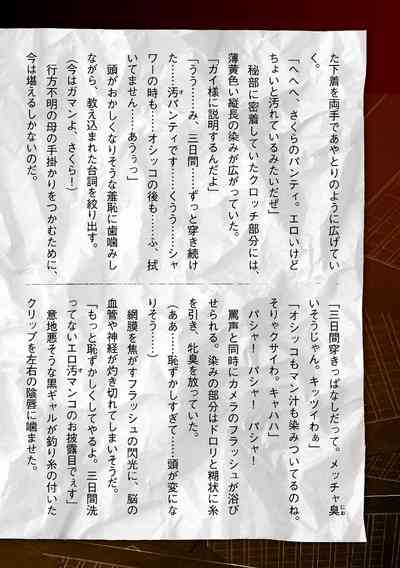 た下着を両手であやとりのように広げてい
く。
「へへへ、さくらのパンティ。エロいけど
ちょいと汚れているみたいだぜ」
秘部に密着していたクロッチ部分には、
薄黄色い縦長の染みが広がっていた。
「ガイ様に説明するんだよ」
「うう……み、三日間……ずっと穿き続け
た……汚パンティです……くうう……シャ
ワーの時も……オシッコの後も……ふ、拭
いてません……あうぅっ」
頭がおかしくなりそうな羞恥に歯噛みし
ながら、教え込まれた台詞を絞り出す。
(今はガマンよ、さくら!)
行方不明の母の手掛かりをつかむために、
今は堪えるしかないのだ。
「三日間穿きっぱなしだって。メッチャ臭
いそうじゃん。キッツイわぁ」
「オシッコもマン汁も染みついてるのね。
そりゃクサイわ。キャハハ」
パシャ! パシャ! パシャ!
罵声と同時にカメラのフラッシュが浴び
せられる。染みの部分はドロリと糊状に糸
を引き、牝臭を放っていた。
(ああ……恥ずかしすぎて……頭が変にな
りそう……)
網膜を焦がすフラッシュの閃光に、脳の
血管や神経が灼き切れてしまいそうだ。
「もっと恥ずかしくしてやるよ。三日間洗
ってないエロ汚マンコのお披露目でぇす」
意地悪そうな黒ギャルが釣り糸の付いた
クリップを左右の陰唇に噛ませた。